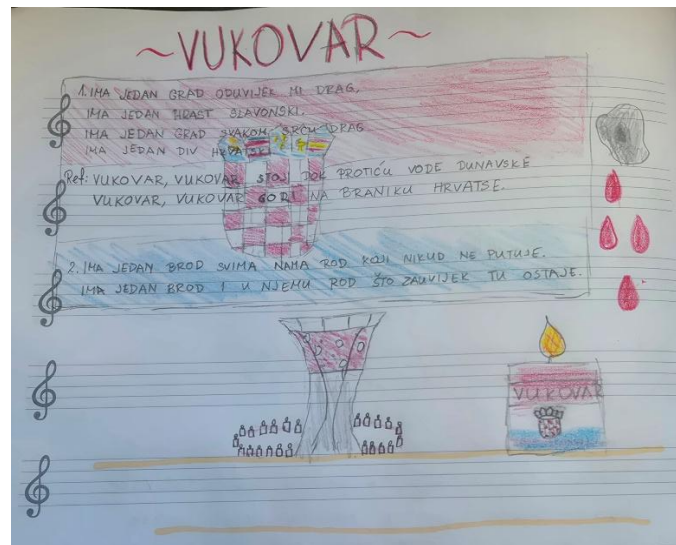 ~VUKOVAR~
1. IMA JEDAN GRAD ODUVIJEK MI DRAG,
IMA JEDAN HRAST SLAVONSKI.
IMA JEDAN GRAD SVAKOM SRCU DRAG
IMA JEDAN DIV HRVATSKI
Ref: VUKOVAR, VUKOVAR STOJ DOK PROTIČU VODE DUNAVSKE
VUKOVAR, VUKOVAR GORI NA BRANIKU HRVATSE.
2. IMA JEDAN BROD SVIMA NAMA ROD KOJI NIKUD NE PUTUJE.
IMA JEDAN BROD I U NJEMU ROD ŠTO ZAUVIJEK TU OSTAJE.
VUKOVAR